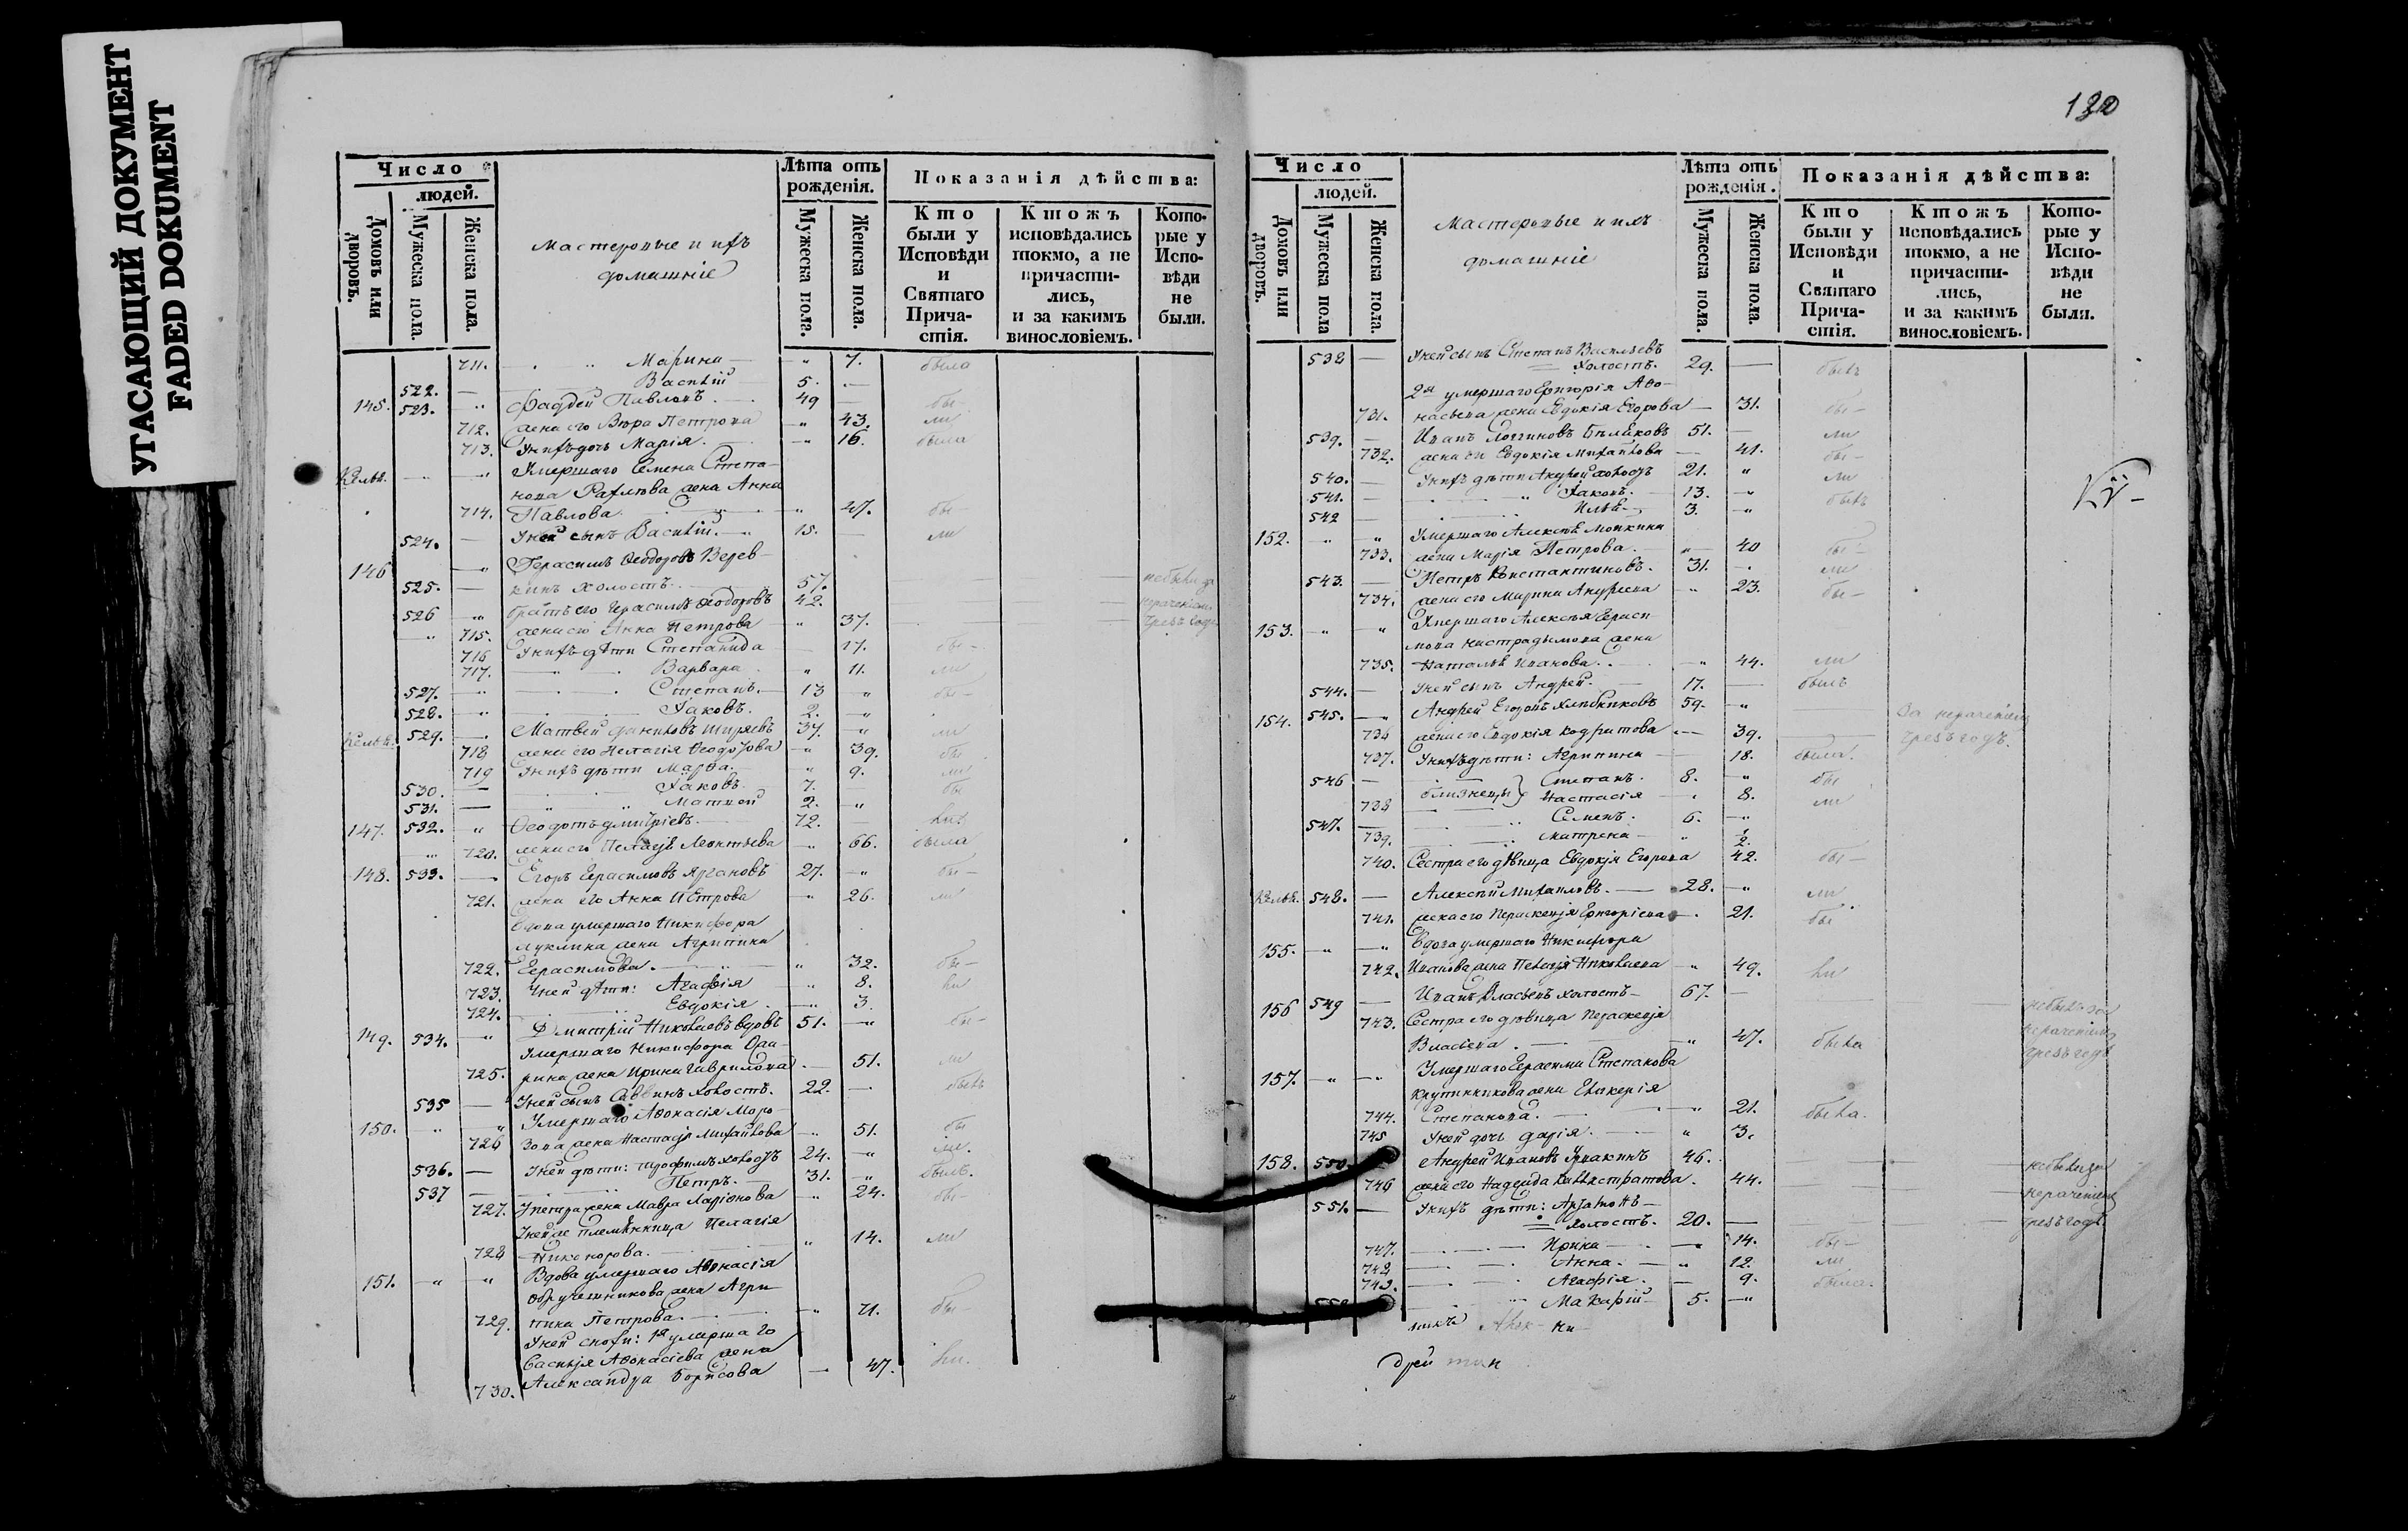 УГАСАЮЩИЙ ДОКУМЕНТ
FADED DOKUMENT
Число
людей.
Домовъ или дворовъ.
Мужеска пола.
Женска пола.
Мастеровые и ихъ
домашніе
Лѣта отъ рожденія.
Мужеска пола.
Женска пола.
Показанія дѣйства:
Кто были у Исповѣди и Святаго Причастія.
Ктожъ исповѣдались токмо, а не причастились, и за какимъ винословіемъ.
Которые у Исповѣди не были.
711. Марина 7. была
522. Василій 5.
145. 523. Фаддей Павловъ 49 бы-
712. жена его Вѣра Петрова 43. ли
713. У нихъ дочь Марія. 16. была
Умершаго Семена Степа-
нова жена Анна
714. Павлова. 47. бы-
524. У ней сынъ Василій. 15. ли
146 Герасимъ Феодоровъ Верев-
525. кинъ холостъ. 57. небыли за
526 братъ его Герасимъ Феодоровъ 42. нераченіемъ
715. жена его Анна Петрова 37. чрезъ годъ
716 У нихъ дѣти Степанида 17. бы-
717. Варвара 11. ли
527. Степанъ. 13 бы-
528. Іаковъ. 2.
529. Матвей Ширяевъ 37. ли
718 жена его Пелагія 39. бы
719 У нихъ дѣти Марфа. 9. ли
530. Іаковъ 7. бы
531. Матвей 2.
147. 532. Феодотъ Дмитріевъ. 72. ли
720. жена его Пелагія Леонтьева 66. была
148. 533. Егоръ Герасимовъ 27. бы-
721. жена его Анна Петрова 26. ли
Вдова умершаго Никифора
Луклина жена Агрипина
722. Герасимова. 32. бы-
723. У ней дѣти: Агафія 8. ли
724. Евдокія 3.
149. 534. Дмитрій Николаевъ вдовъ 51. бы-
Умершаго Никифора
725. рина жена Ирина Гаврилова 51. ли
535 У ней сынъ Саввинъ холостъ. 22. былъ
150. Умершаго Афонасія Моро-
726 зова жена Настасія Михайлова 51. бы
536. У ней дѣти: Трофимъ холостъ 24. ли.
537 Петръ. 31. былъ.
727. У Петра жена Мавра Ларіонова 24. бы-
У ней же племянница Пелагія
728 Никонорова. 14. ли
151. Вдова умершаго Афонасія
Обручешникова жена Агри-
729. пина Петрова. 71. бы
У ней снохи: 1я умершаго
Василья Афонасіева жена
730. Александра Борисова 47. ли.
120
Число
людей.
Домовъ или дворовъ.
Мужеска пола
Женска пола.
Мастеровые и ихъ
домашніе
Лѣта отъ рожденія.
Мужеска пола.
Женска пола.
Показанія дѣйства:
Кто были у Исповѣди и Святаго Причастія.
Ктожъ исповѣдались токмо, а не причастились, и за какимъ винословіемъ.
Которые у Исповѣди не были.
538 У ней сынъ Степанъ Васильевъ
холостъ. 29. былъ
2я умершаго Григорія Афо-
731. насьева жена Евдокія Егорова 31. бы-
539. Иванъ Логгиновъ Бѣляковъ 51. ли
732. жена его Евдокія Михайлова 41. бы-
540. У нихъ дѣти Андрей холостъ 21. ли
541. Іаковъ. 13. былъ
542 Илья. 3.
152. Умершаго Алексѣя Мошкина
733. жена Марія Петрова. 40 бы-
543. Петръ Константиновъ. 31. ли
734. жена его Марина Андреева 23. бы-
153. Умершаго Алексѣя Гераси-
мова жена
735. Наталья Иванова. 44. ли
544. У ней сынъ Андрей. 17. былъ
154. 545. Андрей Егоровъ Хлѣбниковъ 59. За нераченіемъ
736 жена его Евдокія Кодратова 39. чрезъ годъ.
737. У нихъ дѣти: Агрипина 18. была.
546 близнецы } Степанъ. 8. бы
738 Настасія 8. ли
547. Семенъ. 6.
739. Матрена 1/2.
740. Сестра его дѣвица Евдокія Егорова 42. бы-
548. Алексѣй Михайловъ. 28. ли
741. жена его Параскевія Григоріева 21. бы
155. Вдова умершаго Никифора
742. Иванова жена Пелагія Николаева 49. ли
156 549 Иванъ Власьевъ холостъ 67. небылъ за
743. Сестра его дѣвица Параскевія нераченіемъ
Власьева. 47. была чрезъ годъ
157. Умершаго Герасима Степанова
Крупинникова жена Гликерія
744. Степанова. 21. была.
745 У ней дочь Дарія. 3.
158. 550. Андрей Ивановъ 46. небыли за
746 жена его Надежда Калистратова. 44. нераченіемъ
551. У нихъ дѣти:
холостъ. 20. чрезъ годъ
747. Ирина 14. бы-
748 Анна. 12. ли
749. Агафія. 9. была.
552 Макарій 5.